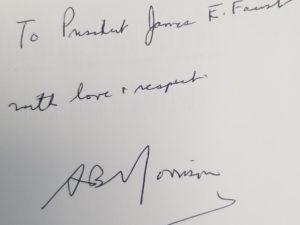 To President James E. Faust
with love & respect.
AB Morrison